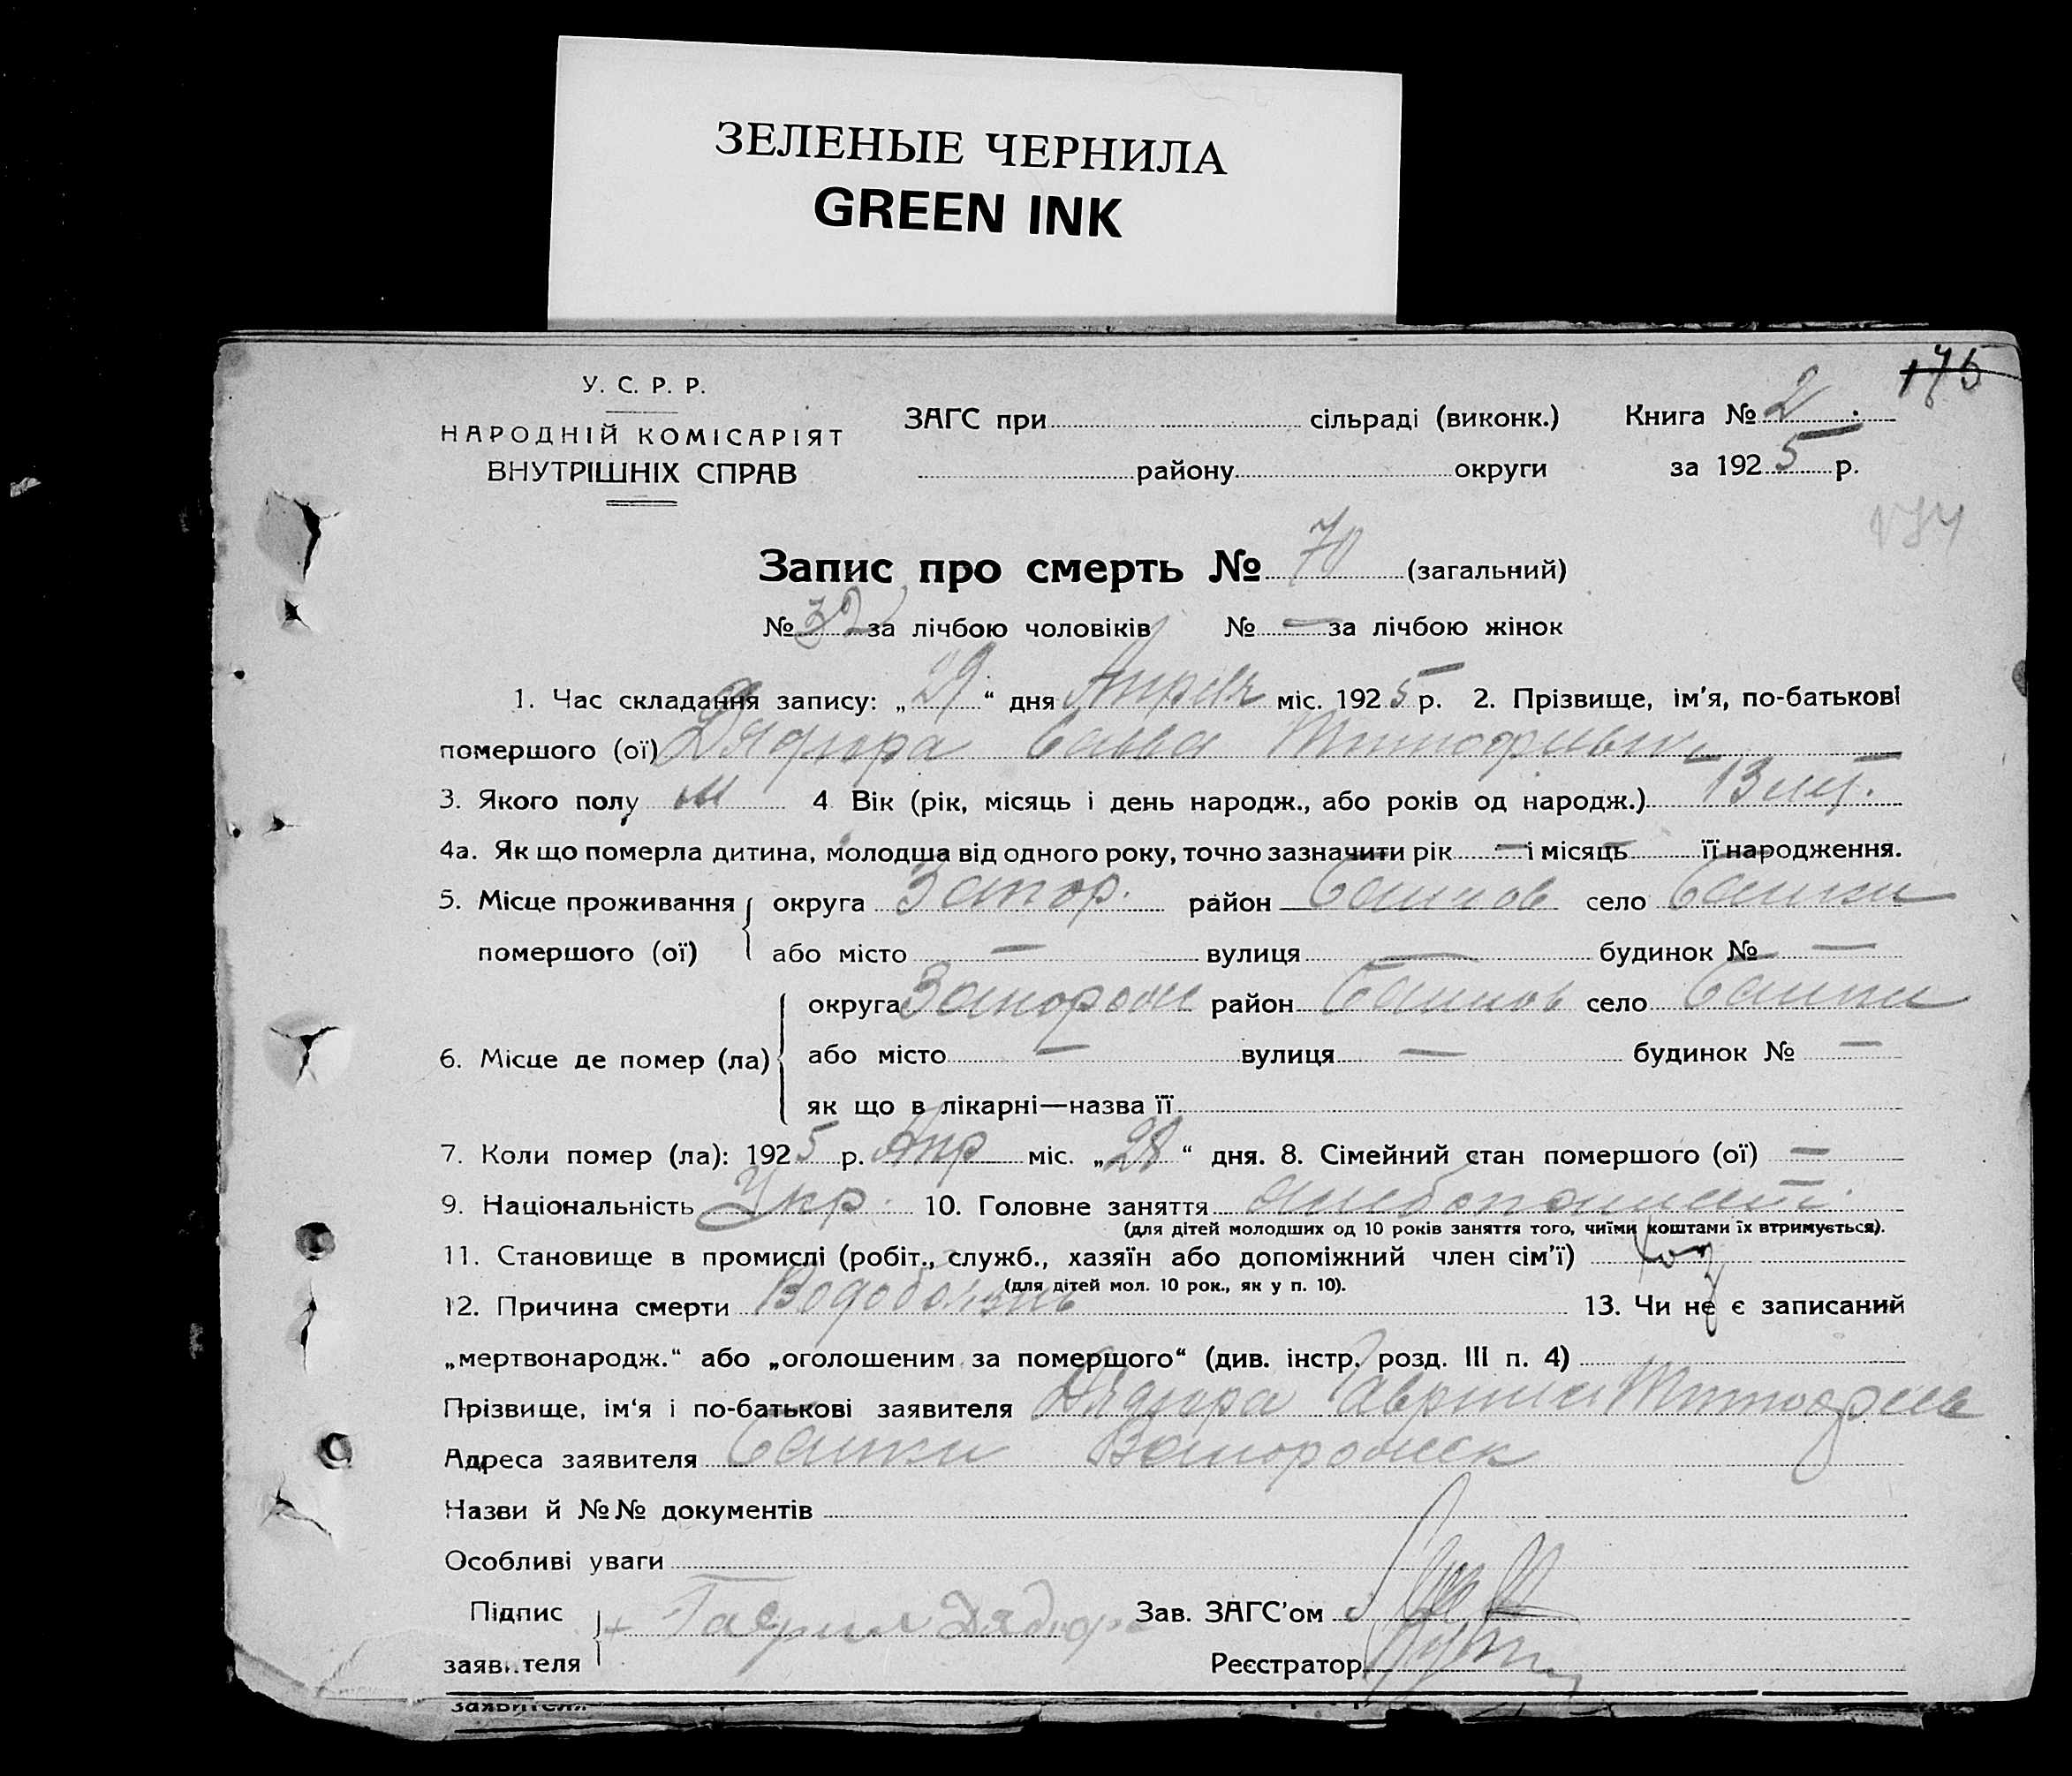 ЗЕЛЕНЫЕ ЧЕРНИЛА
GREEN INK
175
У. С. Р. Р.
НАРОДНІЙ КОМІСАРІЯТ
ВНУТРІШНІХ СПРАВ
ЗАГС при сільраді (виконк.) Книга № 2
району округи за 1925 р.
174
Запис про смерть № 70 (загальний)
№ 32 за лічбою чоловіків № — за лічбою жінок
1. Час складання запису: „29“ дня Апреля міс. 1925 р. 2. Прізвище, ім'я, по-батькові
помершого (ої) Дядюра Савва Тимофеевич
3. Якого полу м 4 Вік (рік, місяць і день народж., або років од народж.) 13 лет.
4а. Як що померла дитина, молодша від одного року, точно зазначити рік — і місяць — її народження.
5. Місце проживання помершого (ої) округа Запор. район Балков село Балки
або місто — вулиця — будинок № —
6. Місце де помер (ла) округа Запорож район Балков село Балки
або місто — вулиця — будинок № —
як що в лікарні—назва її
7. Коли помер (ла): 1925 р. Апр міс. „28“ дня. 8. Сімейний стан помершого (ої) —
9. Національність Укр. 10. Головне заняття хлебопашест.
(для дітей молодших од 10 років заняття того, чиїми коштами їх втримується).
11. Становище в промислі (робіт., служб., хазяїн або допоміжний член сім'ї) хоз
(для дітей мол. 10 рок., як у п. 10).
12. Причина смерти Водобоязнь 13. Чи не є записаний
„мертвонародж.“ або „оголошеним за помершого“ (див. інстр. розд. III п. 4)
Прізвище, ім'я і по-батькові заявителя Дядюра Гаврил Тимофеев
Адреса заявителя Балки Запорожск
Назви й №№ документів
Особливі уваги
Підпис заявителя + Гаврил Дядюра Зав. ЗАГС'ом
Реєстратор
заявителя